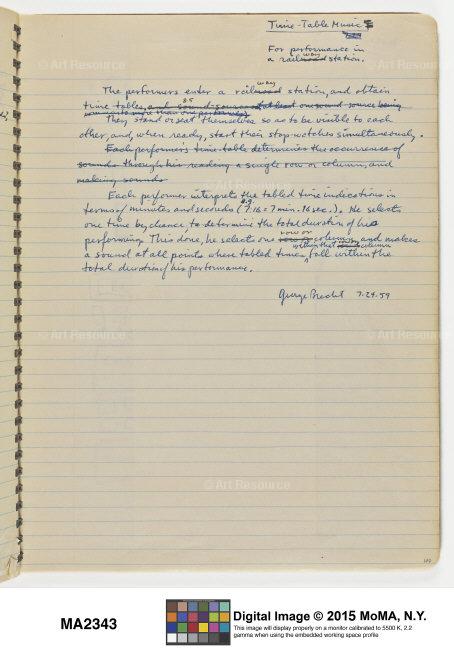 Time-Table Music
For performance in
a railway station.
The performers enter a railway station, and obtain
time tables, and sound-sources
They stand or seat themselves so as to be visible to each
other, and, when ready, start their stop-watches simultaneously.
Each performer's time-table determines the occurrence of
sounds through his reading a single row or column, and
making sounds
Each performer interprets the tabled time indications in
terms of minutes and seconds (e.g. 7:16 = 7 min. 16 sec.). He selects
one time by chance to determine the total duration of his
performing. This done, he selects one row or column, and makes
a sound at all points where tabled times within that column fall within the
total duration of his performance.
George Brecht 7-24-59
Art Resource
MA2343
Digital Image © 2015 MoMA, N.Y.
This image will display properly on a monitor calibrated to 5500 K, 2.2
gamma when using the embedded working space profile